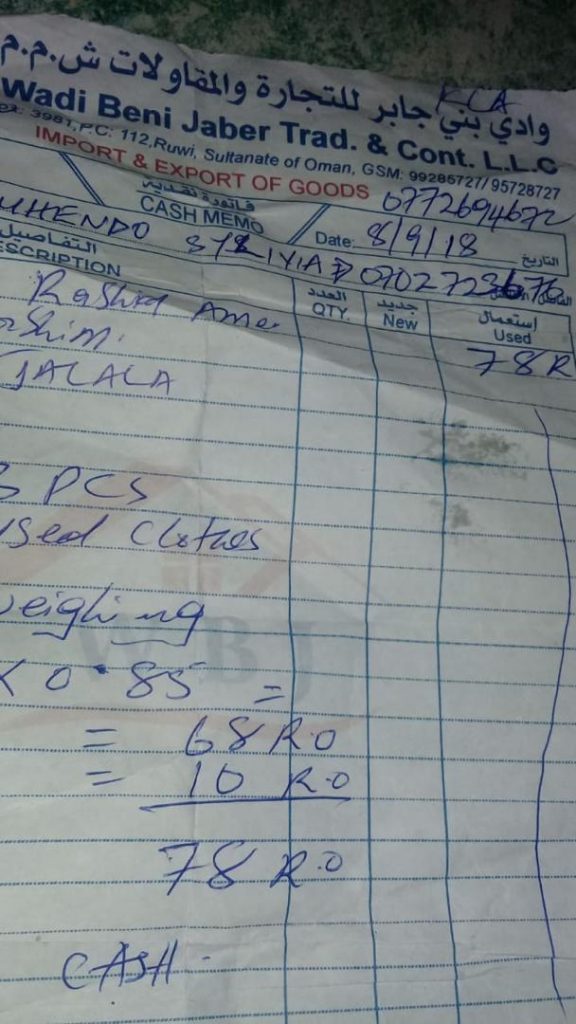 وادي بني جابر للتجارة والمقاولات ش.م.م
KLA
Wadi Beni Jaber Trad. & Cont. L.L.C
3981, P.C: 112, Ruwi, Sultanate of Oman, GSM: 99285727/ 95728727
IMPORT & EXPORT OF GOODS
0772694672
فاتورة نقدية
CASH MEMO
Date: 8/9/18 التاريخ
MHENDO
التفاصيل
ESCRIPTION
العدد
QTY.
جديد
New
إستعمال
Used
Rashid
78R
shim.
JALALA
PCS
used Clothes
weighing
WBJ
X 0.85 =
= 68 R.O
= 10 R.O
78 R.O
CASH.